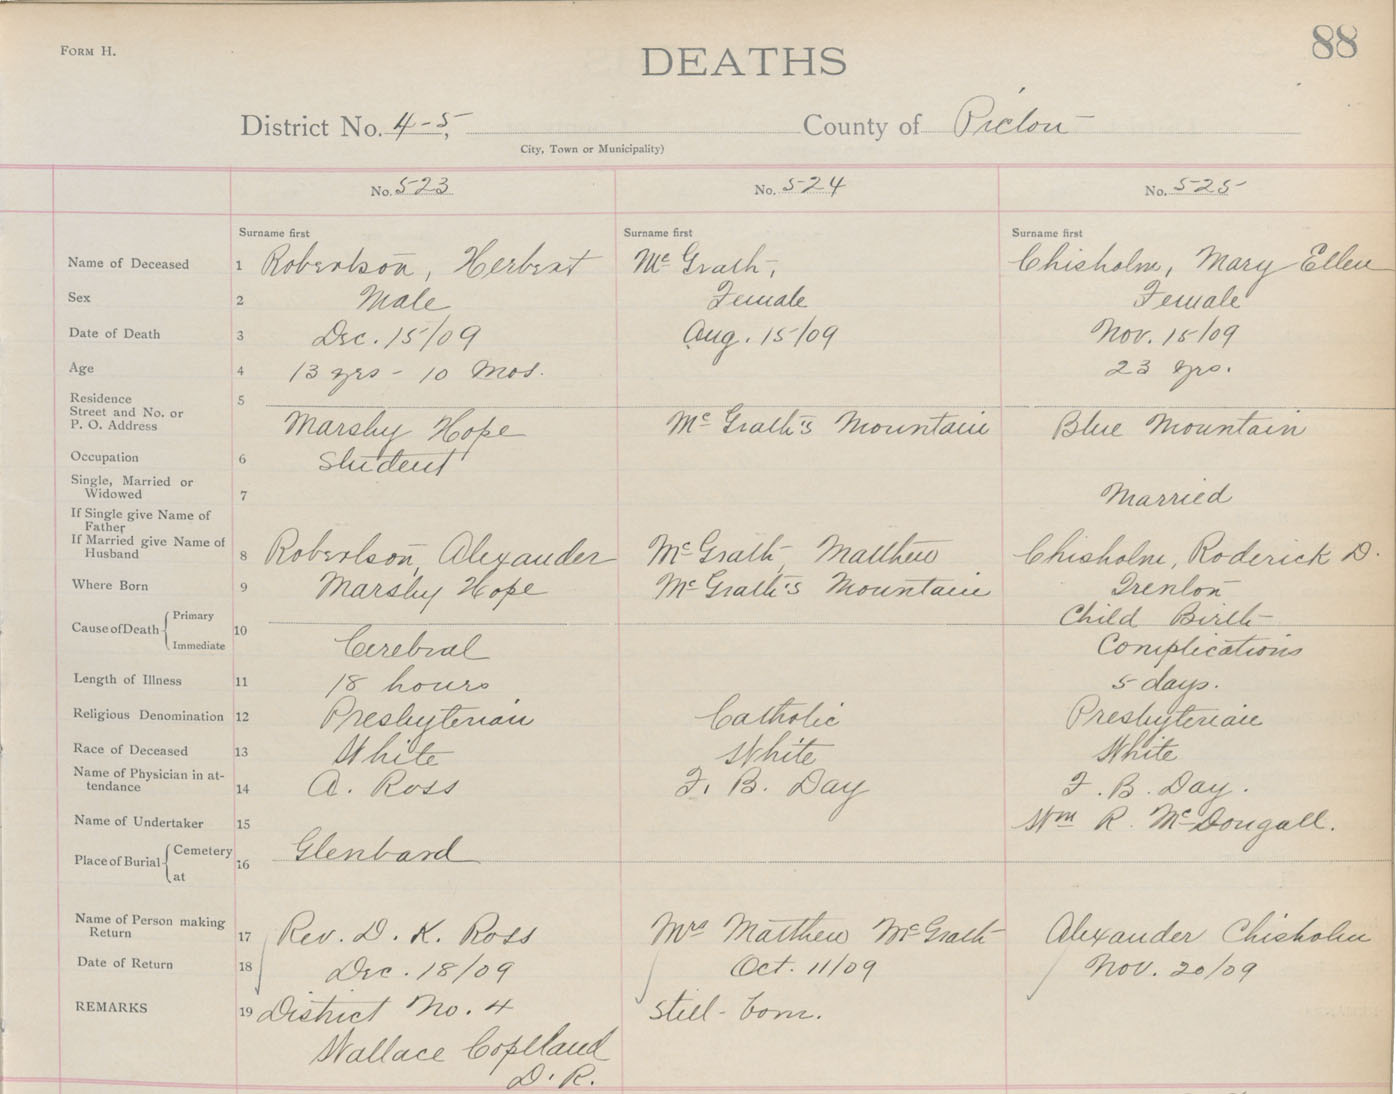 FORM H.
DEATHS
88
District No. 4-5, County of Pictou
City, Town or Municipality)
No. 523 No. 524 No. 525
Surname first Surname first Surname first
Name of Deceased 1 Robertson, Herbert McGrath, Chisholm, Mary Ellen
Sex 2 Male Female Female
Date of Death 3 Dec. 15/09 Aug. 15/09 Nov. 15/09
Age 4 13 yrs - 10 Mos. 23 yrs.
Residence 5
Street and No. or
P. O. Address Marshy Hope McGrath's Mountain Blue Mountain
Occupation 6 Student
Single, Married or
Widowed 7 Married
If Single give Name of
Father
If Married give Name of
Husband 8 Robertson, Alexander McGrath, Matthew Chisholm, Roderick D.
Where Born 9 Marshy Hope McGrath's Mountain Trenton
Cause of Death Primary 10 Child Birth
Immediate Cerebral Complications
Length of Illness 11 18 hours 5 days.
Religious Denomination 12 Presbyterian Catholic Presbyterian
Race of Deceased 13 White White White
Name of Physician in at-
tendance 14 A. Ross F. B. Day F. B. Day.
Name of Undertaker 15 Wm R. McDougall.
Place of Burial Cemetery 16 Glenbard
at
Name of Person making
Return 17 Rev. D. K. Ross Mrs Matthew McGrath Alexander Chisholm
Date of Return 18 Dec. 18/09 Oct. 11/09 Nov. 20/09
REMARKS 19 District No. 4 Still-born.
Wallace Copeland
D. R.